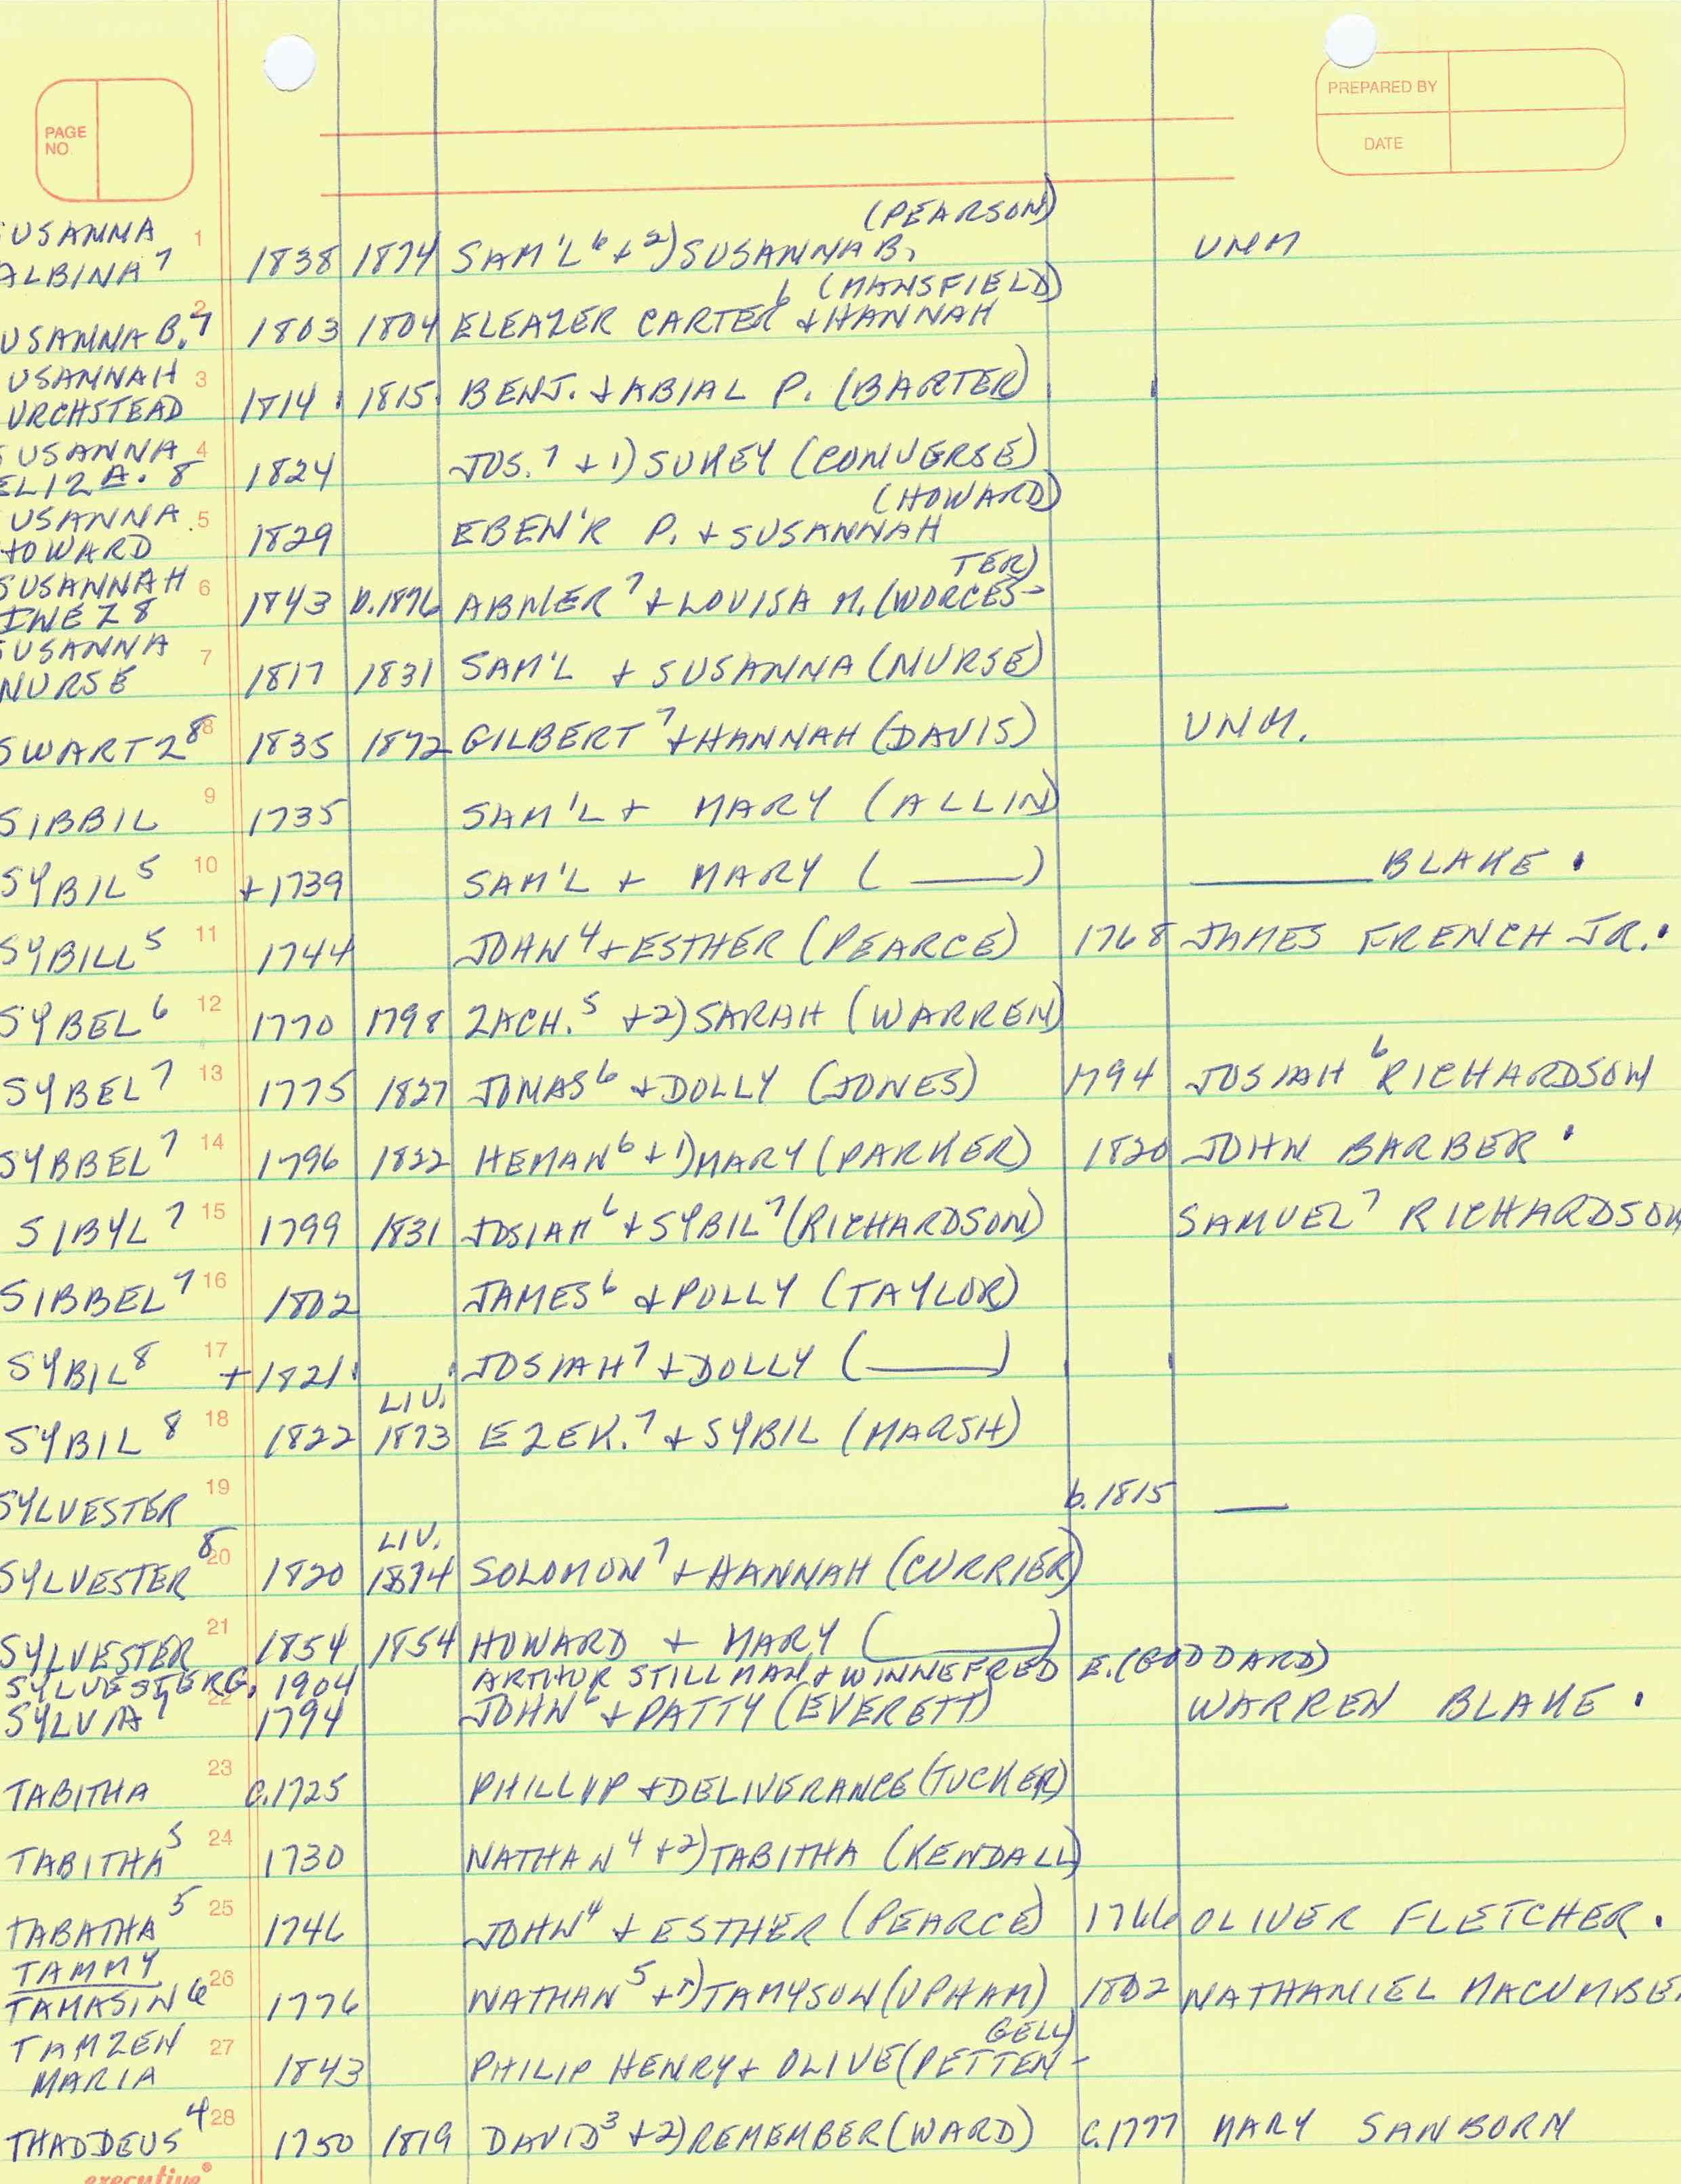 PAGE NO.
PREPARED BY
DATE
(PEARSON)
USANNA 1
ALBINA 7 1838 1874 SAM'L 6 + 2) SUSANNA B. UNM
(MANSFIELD)
2
USANNA B. 7 1803 1804 ELEAZER CARTER 6 + HANNAH
USANNAH 3
URCHSTEAD 1814 1815 BENJ. + ABIAL P. (BARTER)
USANNA 4
ELIZA. 8 1824 JOS. 7 + 1) SUKEY (CONVERSE)
(HOWARD)
USANNA 5
HOWARD 1829 EBEN'R P. + SUSANNAH
TER)
SUSANNAH 6
INEZ 8 1843 D. 1876 ABNER 7 + LOUISA M. (WORCES-
SUSANNA 7
NURSE 1817 1831 SAM'L + SUSANNA (NURSE)
SWARTZ 8 8 1835 1872 GILBERT 7 + HANNAH (DAVIS) UNM.
SIBBIL 9 1735 SAM'L + MARY (ALLIN)
SYBIL 5 10 +1739 SAM'L + MARY ( ____ ) ____ BLAKE .
SYBILL 5 11 1744 JOHN 4 + ESTHER (PEARCE) 1768 JAMES FRENCH JR. .
SYBEL 6 12 1770 1798 ZACH. 5 + 2) SARAH (WARREN)
SYBEL 7 13 1775 1827 JONAS 6 + DOLLY (JONES) 1794 JOSIAH 6 RICHARDSON
SYBBEL 7 14 1796 1822 HEMAN 6 + 1) MARY (PARKER) 1820 JOHN BARBER .
SIBYL 7 15 1799 1831 JOSIAH 6 + SYBIL 7 (RICHARDSON) SAMUEL 7 RICHARDSON
SIBBEL 7 16 1802 JAMES 6 + POLLY (TAYLOR)
SYBIL 8 17 +1821 JOSIAH 7 + DOLLY ( ____ )
LIV.
SYBIL 8 18 1822 1873 EZEK. 7 + SYBIL (MARSH)
SYLVESTER 19 b. 1815 ____
LIV.
SYLVESTER 8 20 1820 1874 SOLOMON 7 + HANNAH (CURRIER)
SYLVESTER 21 1854 1854 HOWARD + MARY ( ____ )
SYLVESTER G. 1904 ARTHUR STILLMAN + WINNEFRED E. (GODDARD)
SYLVIA 7 22 1794 JOHN 6 + PATTY (EVERETT) WARREN BLAKE .
TABITHA 23 C. 1725 PHILLIP + DELIVERANCE (TUCKER)
TABITHA 5 24 1730 NATHAN 4 + 2) TABITHA (KENDALL)
TABATHA 5 25 1746 JOHN 4 + ESTHER (PEARCE) 1766 OLIVER FLETCHER .
TAMMY
TAMASIN 6 26 1776 NATHAN 5 + 1) TAMYSON (UPHAM) 1802 NATHANIEL MACUMBE
GELL)
TAMZEN 27
MARIA 1843 PHILIP HENRY + OLIVE (PETTEN-
THADDEUS 4 28 1750 1819 DAVID 3 + 2) REMEMBER (WARD) C. 1777 MARY SANBORN
executive®